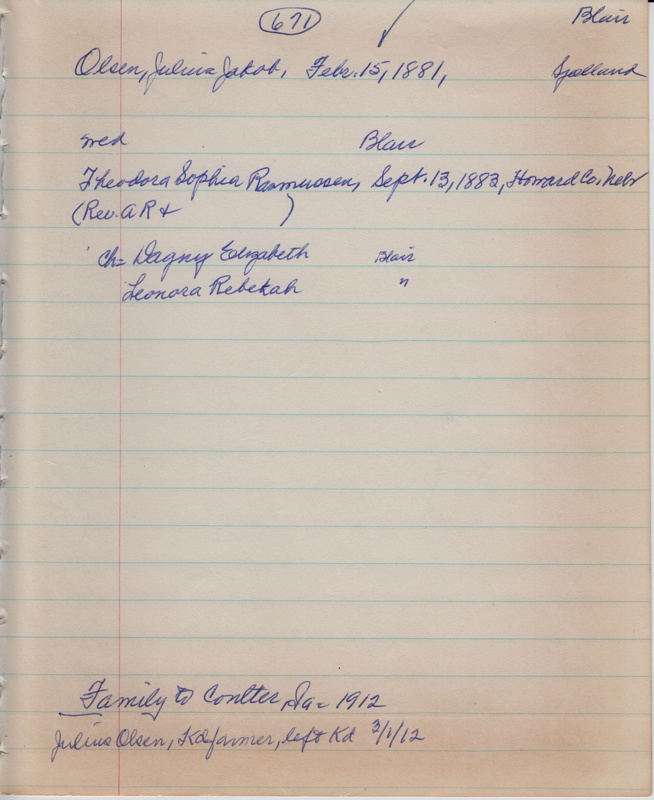 671
Blair
Olsen, Julius Jakob, Febr. 15, 1881, Sjælland
med Blair
Theodora Sophia Rasmussen, Sept. 13, 1883, Howard Co, Nebr
(Rev. A R + )
Ch = Dagny Elizabeth Blair
Leonora Rebekah "
Family to Coulter, Ia = 1912
Julius Olsen, Kd farmer, left Kd 3/1/12